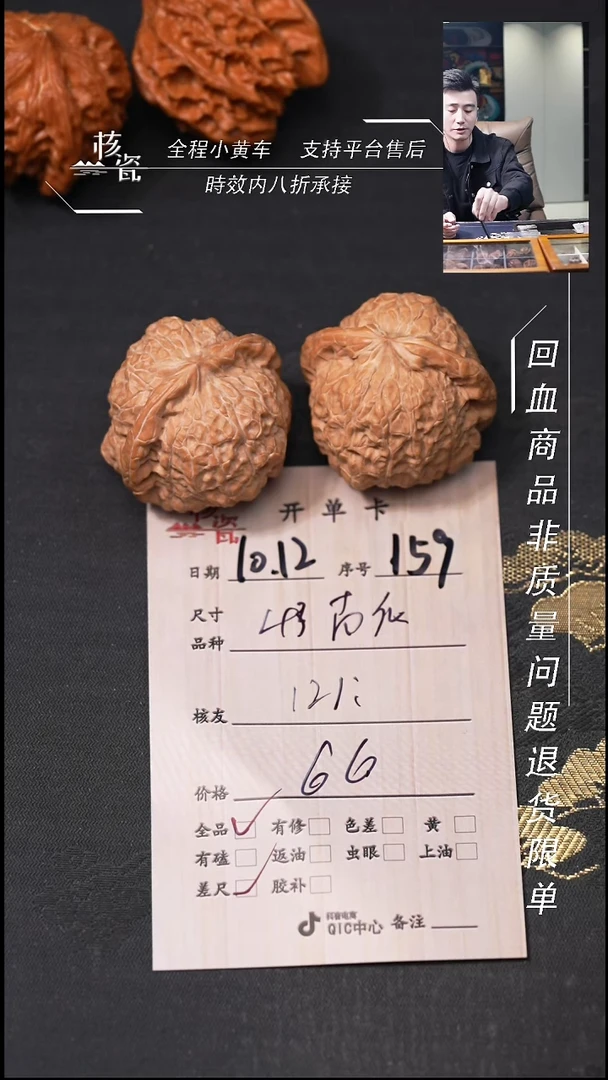 核瓷
全程小黄车 支持平台售后
時效内八折承接
回血商品非质量问题退货限单
核瓷
开单卡
日期 10.12 序号 159
尺寸
品种
核友
价格 66
全品 有修 色差 黄
有磕 返油 虫眼 上油
差尺 胶补
抖音电商
QIC中心 备注